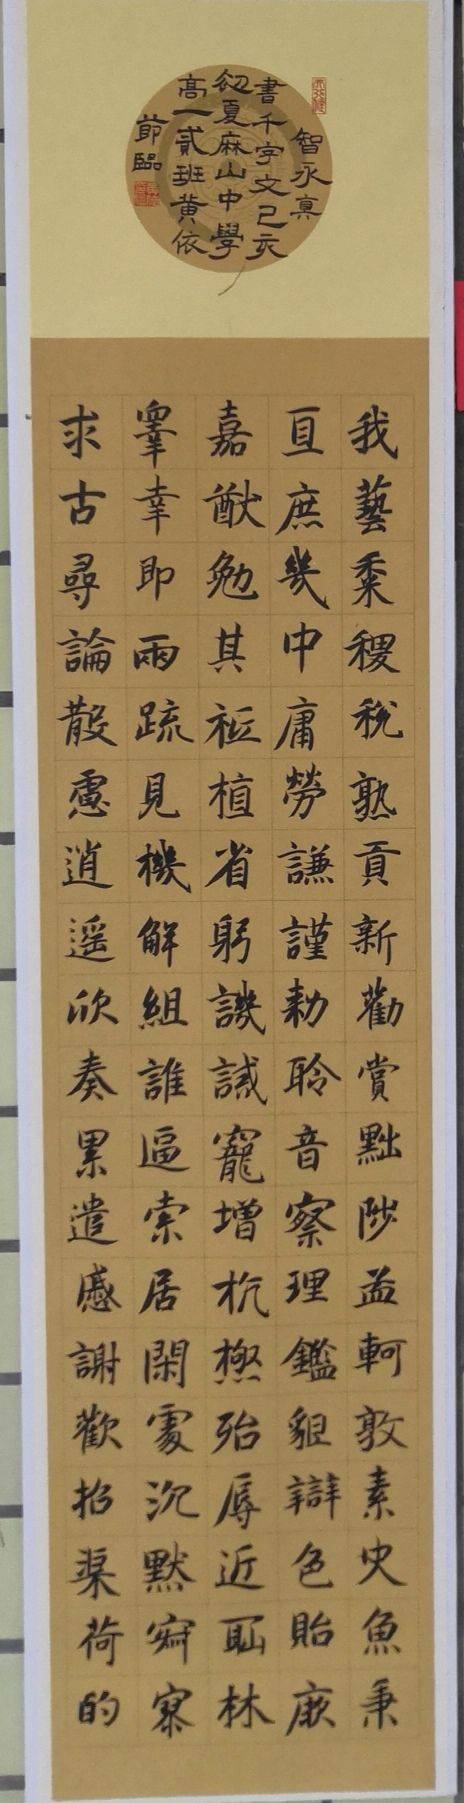 智永真
書千字文己亥
初夏麻山中學
高一貳班黃依
節臨
我藝黍稷稅熟貢新勸賞黜陟孟軻敦素史魚秉
直庶幾中庸勞謙謹勑聆音察理鑑貌辯色貽厥
嘉猷勉其祗植省躬譏誡寵增抗極殆辱近恥林
皋幸即兩疏見機解組誰逼索居閑處沉默寂寥
求古尋論散慮逍遙欣奏累遣慼謝歡招渠荷的